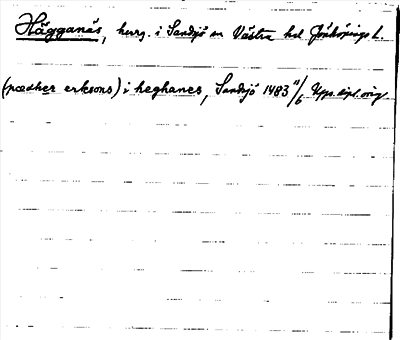 Hägganäs, herrg. i Sandsjö sn Västra hd Jönköpings l.
(pædher erksons) i heghanes, Sandsjö 1483 11/6 Upps. dipl. orig.